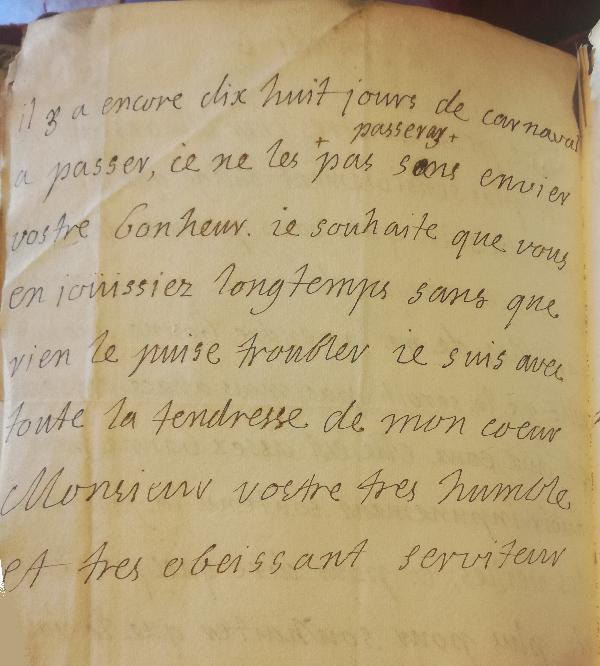 il y a encore dix huit jours de carnaval
passeray
a passer, ie ne les + pas + sans envier
vostre bonheur. ie souhaite que vous
en joüissiez longtemps sans que
rien le puise troubler ie suis avec
toute la tendresse de mon coeur
Monsieur vostre tres humble
et tres obeissant serviteur